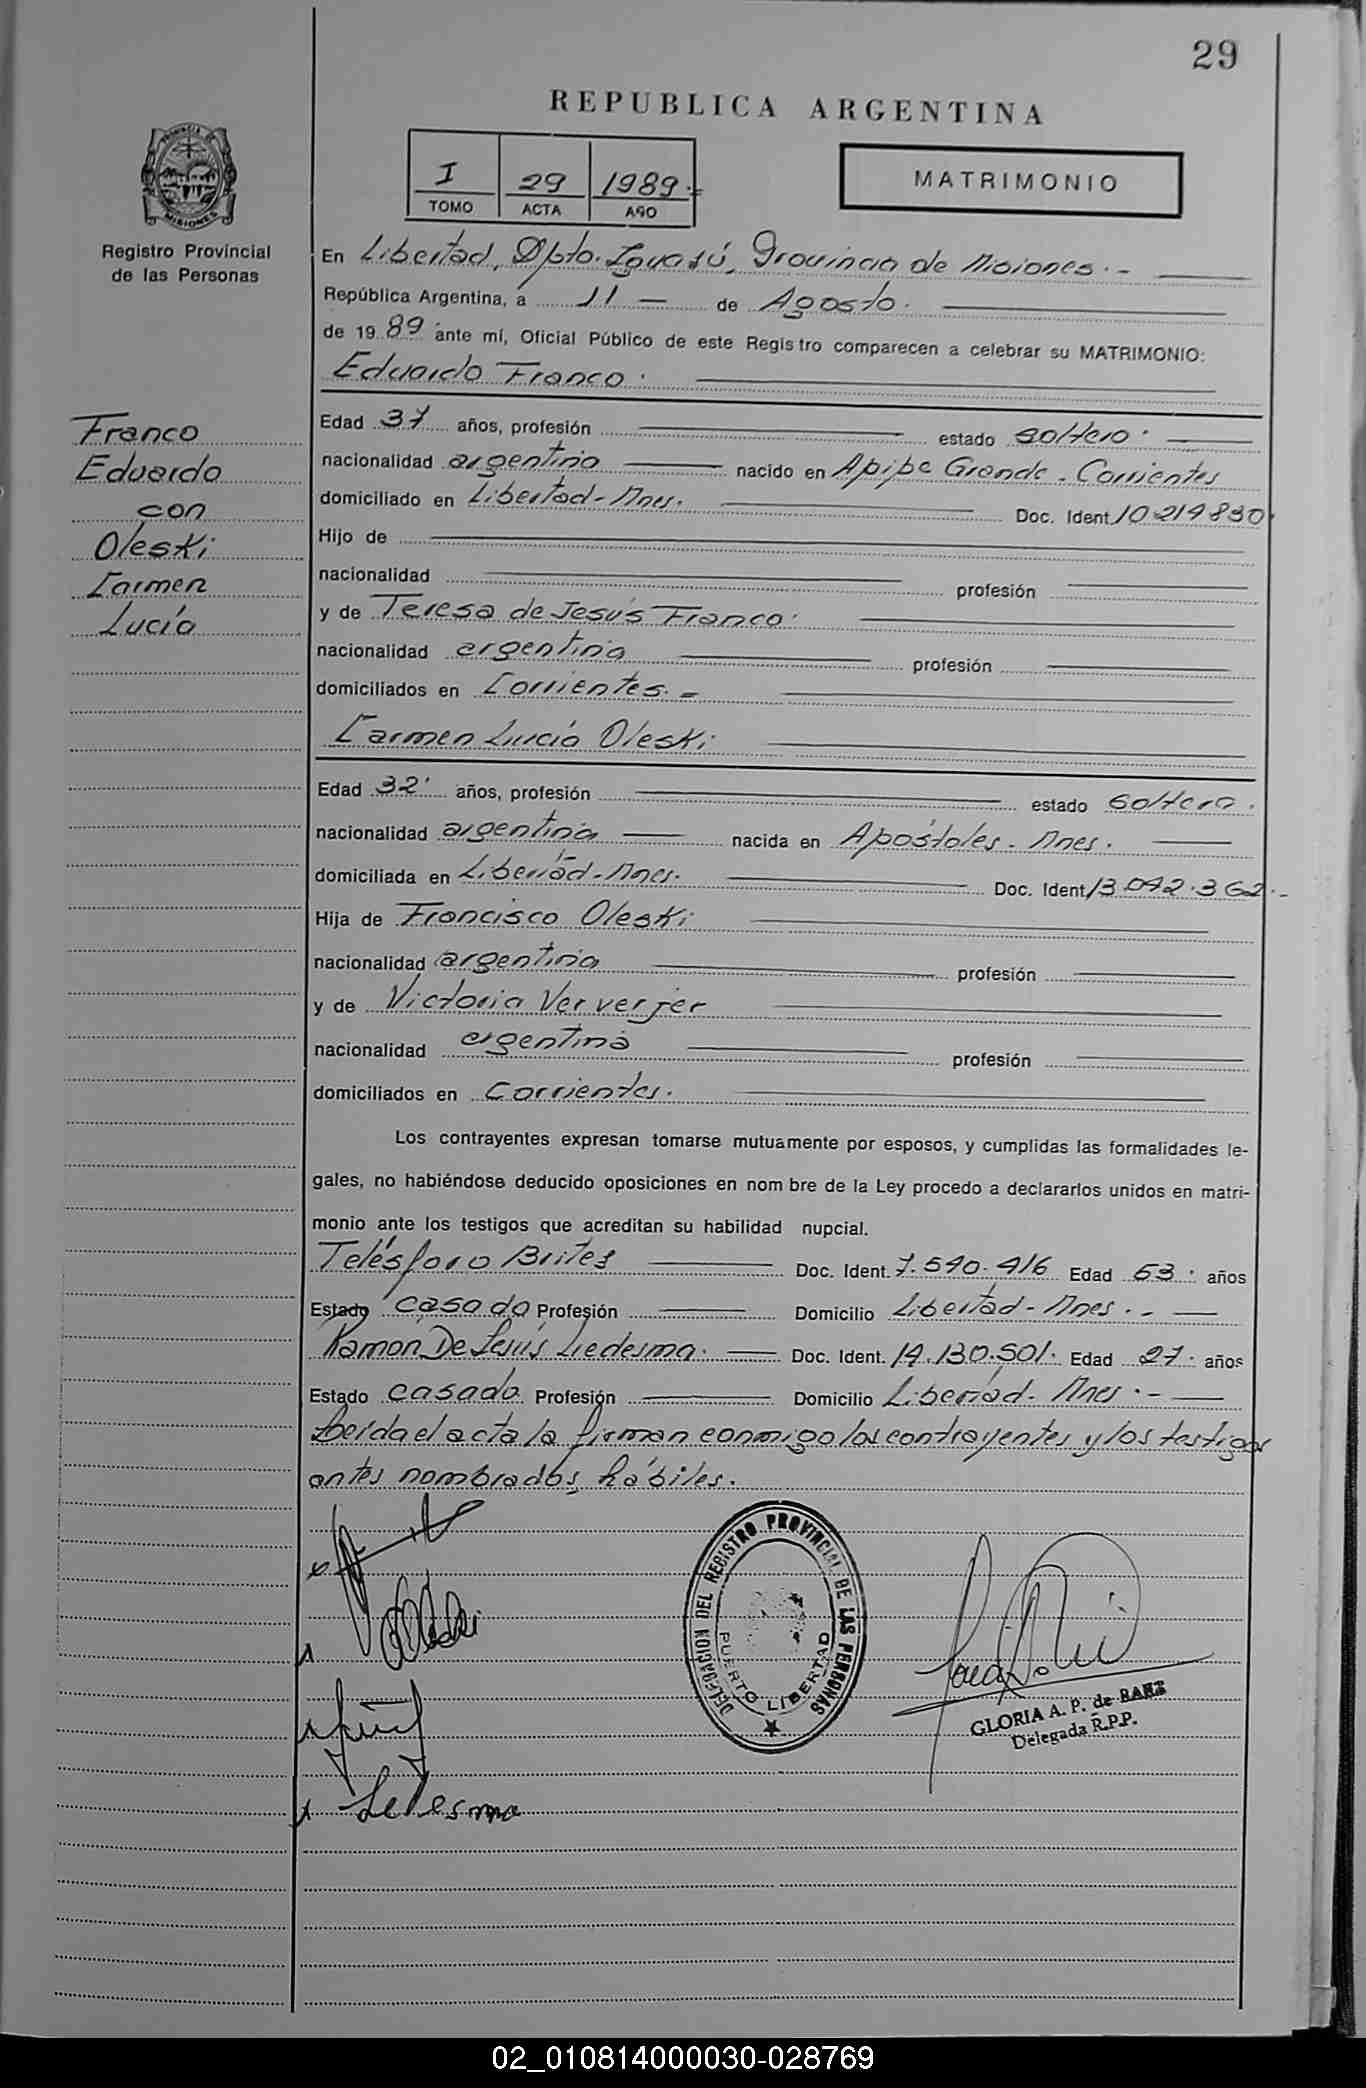 29
REPUBLICA ARGENTINA
I 29 1989.
TOMO ACTA AÑO
MATRIMONIO
PROVINCIA DE MISIONES
Registro Provincial
de las Personas
En Libertad, Dpto. Iguazú, Provincia de Misiones. -
República Argentina, a 11 — de Agosto.
de 1989 ante mí, Oficial Público de este Registro comparecen a celebrar su MATRIMONIO:
Eduardo Franco.
Franco
Eduardo
con
Oleski
Carmen
Lucía
Edad 37 años, profesión estado soltero.
nacionalidad argentina nacido en Apipe Grande. Corrientes
domiciliado en Libertad-Mnes. Doc. Ident. 10.214.830.
Hijo de
nacionalidad profesión
y de Teresa de Jesús Franco.
nacionalidad argentina profesión
domiciliados en Corrientes. -
Carmen Lucía Oleski
Edad 32. años, profesión estado soltera.
nacionalidad argentina nacida en Apóstoles. Mnes.
domiciliada en Libertad-Mnes. Doc. Ident. 13.042.362.-
Hija de Francisco Oleski
nacionalidad argentina profesión
y de Victoria Ververjer
nacionalidad argentina profesión
domiciliados en Corrientes.
Los contrayentes expresan tomarse mutuamente por esposos, y cumplidas las formalidades le-
gales, no habiéndose deducido oposiciones en nom bre de la Ley procedo a declararlos unidos en matri-
monio ante los testigos que acreditan su habilidad nupcial.
Telésforo Brites Doc. Ident. 7.540.416 Edad 53. años
Estado casado Profesión Domicilio Libertad-Mnes. -
Ramon De Jesús Ledesma. Doc. Ident. 14.130.501. Edad 27. años
Estado casado Profesión Domicilio Libertad- Mnes. -
Leída el acta la firman conmigo los contrayentes y los testigos
antes nombrados, hábiles.
DELEGACION DEL REGISTRO PROVINCIAL DE LAS PERSONAS
PUERTO LIBERTAD
GLORIA A. P. de BAEZ
Delegada R.P.P.
Ledesma
02_010814000030-028769